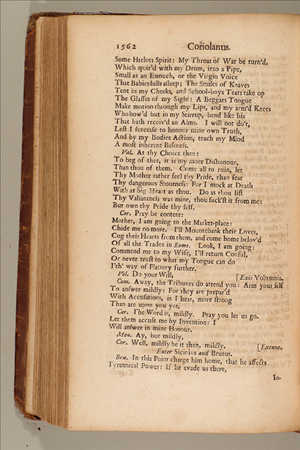 1562 Coriolanus.
Some Harlots Spirit: My Throat of War be turn'd,
Which quir'd with my Drum, into a Pipe,
Small as an Eunuch, or the Virgin Voice
That Babies lulls asleep: The Smiles of Knaves
Tent in my Cheeks, and School-boys Tears take up
The Glasses of my Sight: A Beggars Tongue
Make motion through my Lips, and my arm'd Knees
Who bow'd but in my Stirrup, bend like his
That hath receiv'd an Alms. I will not do't,
Lest I surcease to honour mine own Truth,
And by my Bodies Action, teach my Mind
A most inherent Baseness.
Vol. At thy Choice then:
To beg of thee, it is my more Dishonour,
Than thou of them. Come all to ruin, let
Thy Mother rather feel thy Pride, than fear
Thy dangerous Stoutness: For I mock at Death
With as big Heart as thou. Do as thou list
Thy Valiantness was mine, thou suck'st it from me:
But own thy Pride thy self.
Cor. Pray be content:
Mother, I am going to the Market-place:
Chide me no more. I'll Mountebank their Loves,
Cog their Hearts from them, and come home belov'd
Of all the Trades in Rome. Look, I am going:
Commend me to my Wife, I'll return Consul,
Or never trust to what my Tongue can do
I'th' way of Flattery further.
Vol. Do your Will. [Exit Volumnia.
Com. Away, the Tribunes do attend you: Arm your self
To answer mildly: For they are prepar'd
With Accusations, as I hear, more strong
Than are upon you yet.
Cor. The Word is, mildly. Pray you let us go.
Let them accuse me by Invention: I
Will answer in mine Honour.
Men. Ay, but mildly.
Cor. Well, mildly be it then, mildly. [Exeunt.
Enter Sicinius and Brutus.
Bru. In this Point charge him home, that he affects
Tyrannical Power: If he evade us there,
In-